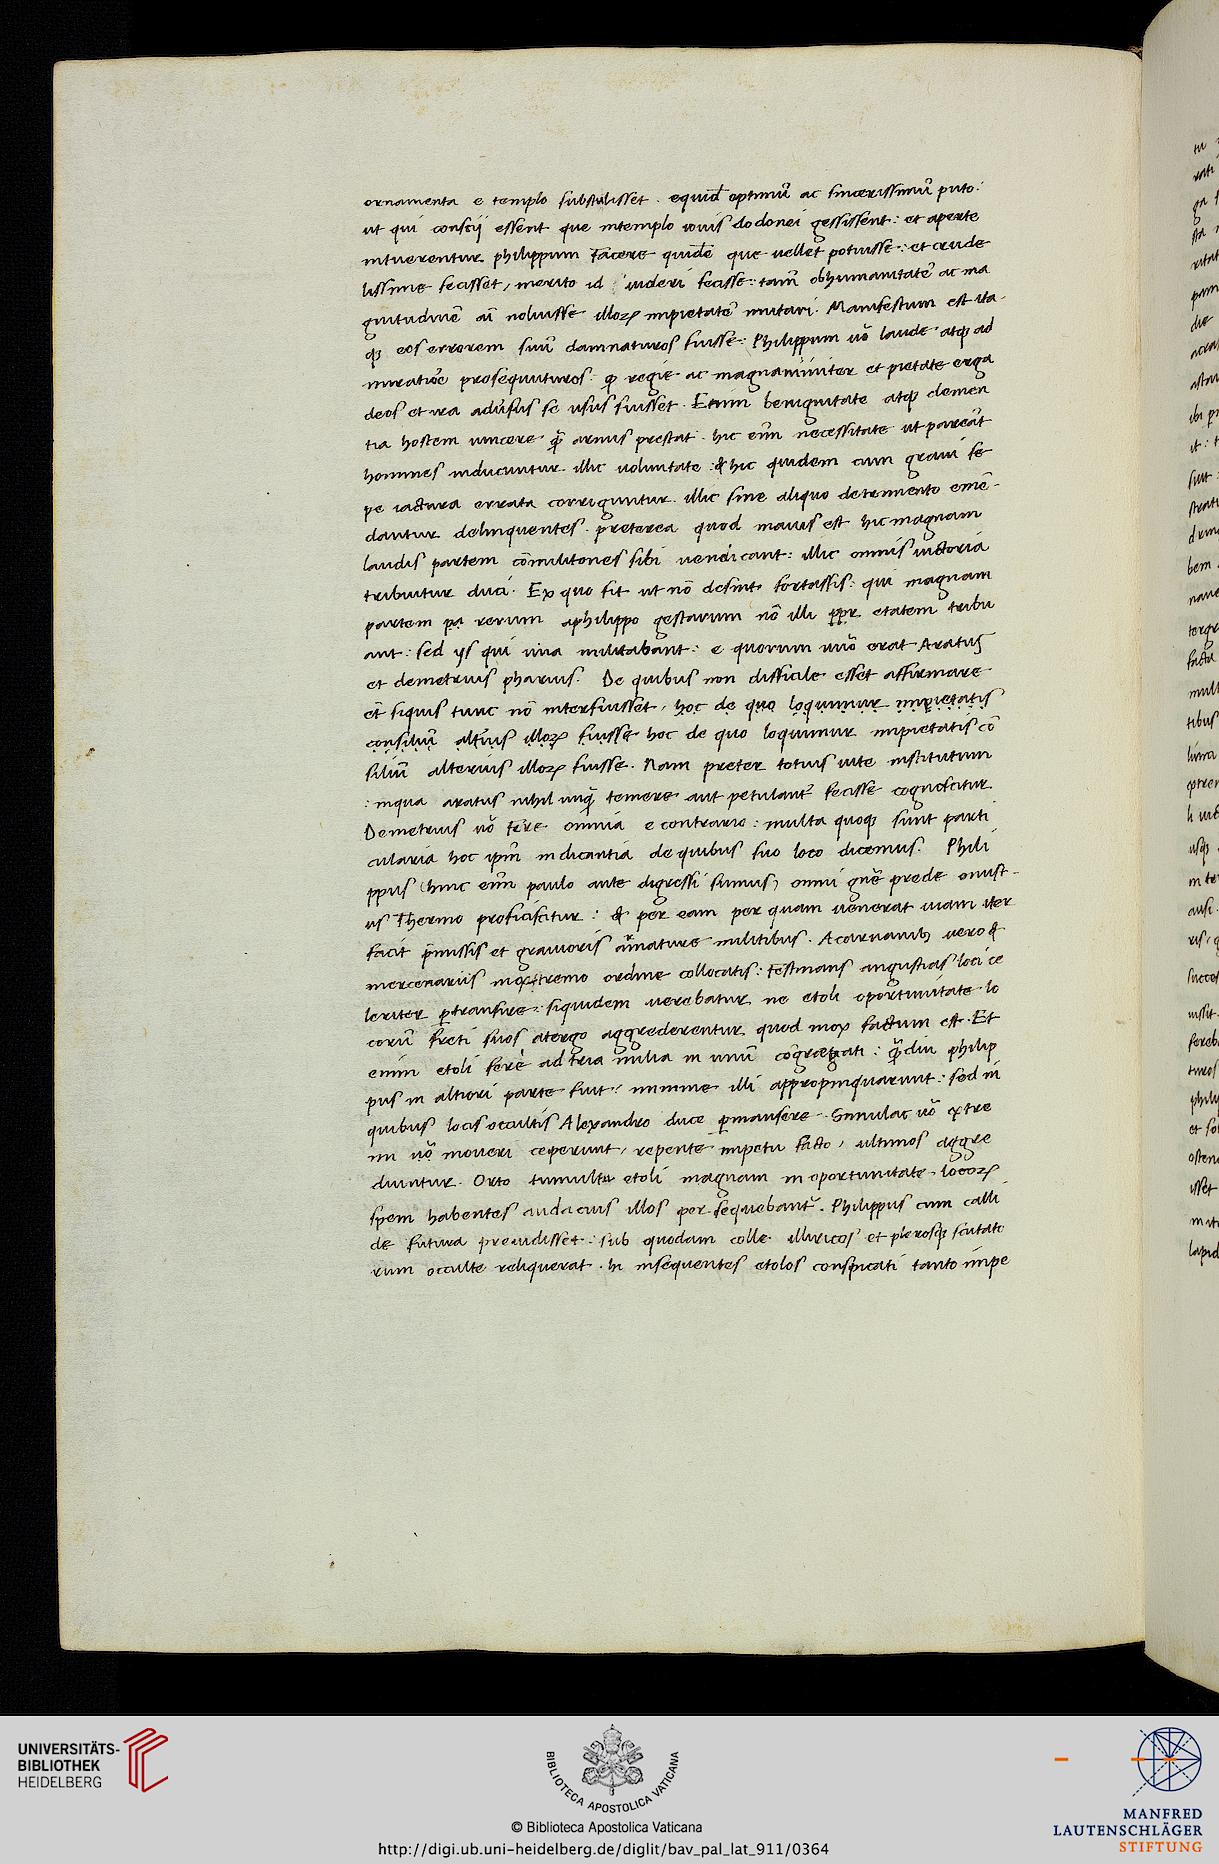 ornamenta e templo substulisset . equid̄ optimū ac sincerissimū puto:
ut qui conscij essent que intemplo iouis dodonei gessissent: et aperte
intuerentur philippum facere quidē que uellet potuisse: et crude
lissime fecisset, merito id uideri fecisse: tam̄ obhumanitatē ac ma
gnitudinē aī noluisse illoꝝ impietatē imitari. Manifestum est ita-
qꝫ eos errorem suū damnaturos fuisse: Philippum uō laude atqꝫ ad
miratiōe prosequuturos: ꝙ regie ac magnanimiter et pietate erga
deos et ira aduersus se usus fuisset. Enim benignitate atqꝫ clemen
tia hostem uincere ꝙ̄ armis prestat. hic eīm necessitate ut pareāt
homines inducuntur illic uoluntate: & hic quidem cum graui se
pe iactura errata corriguntur. illic sine aliquo detrimento emē-
dantur delinquentes. preterea quod maius est hic magnam
laudis partem cōmilitones sibi uendicant: illic omnis uictoria
tribuitur duci. Ex quo fit ut nō desint fortassis: qui magnam
partem rerum aphilippo gestarum nō illi ꝓpr etatem tribu
ant: sed ijs qui una militabant: e quorum nūo erat Aratus
et demetrius pharius. De quibus non difficile esset affirmare
et̄ siquis tunc nō interfuisset, hoc de quo loquimur impietatis
consiliū alt̄ius illoꝝ fuisse hoc de quo loquimur impietatis cō
siliū alterius illoꝝ fuisse. Nam preter totius uite institutum
: inqua aratus nihil unꝙ̄ temere aut petulant̄ fecisse cognoscitur
Demetrius uō fere omnia e contrario: multa quoqꝫ sunt parti
cularia hoc ip̄m indicantia de quibus suo loco dicemus. Phili
ppus (hinc eīm paulo ante digressi sumus) omni gn̄e prede onust-
us Thermo proficiscitur: & per eam per quam uenerat uiam iter
facit p̄missis et grauioris armature militibus. Acarnanibꝫ uero &
mercenariis inextremo ordine collocatis: Festinans angustias loci ce
leriter ꝑtransire: siquidem uerebatur ne etoli oportunitate lo
corū freti suos atergo aggrederentur quod mox factum est. Et
enim etoli fere ad tria milia in unū cōgregati: ꝙ̄diu philip
pus in altiori parte fuit: minime illi appropinquarunt: sed in
quibus locis occultis Alexandro duce ꝑmansere. Simulac uō extre
mi uō moueri ceperunt, repente impetu facto, ultimos aggre
diuntur. Orto tumultu etoli magnam in oportunitate locoꝝ
spem habentes audacius illos persequebant̄. Philippus cum calli
de futura preuidisset: sub quodam colle illiricos et plerosqꝫ scutato
rum occulte reliquerat. hi insequentes etolos conspicati tanto impe
UNIVERSITÄTS-
BIBLIOTHEK
HEIDELBERG
BIBLIOTECA APOSTOLICA VATICANA
© Biblioteca Apostolica Vaticana
http://digi.ub.uni-heidelberg.de/diglit/bav_pal_lat_911/0364
MANFRED
LAUTENSCHLÄGER
STIFTUNG